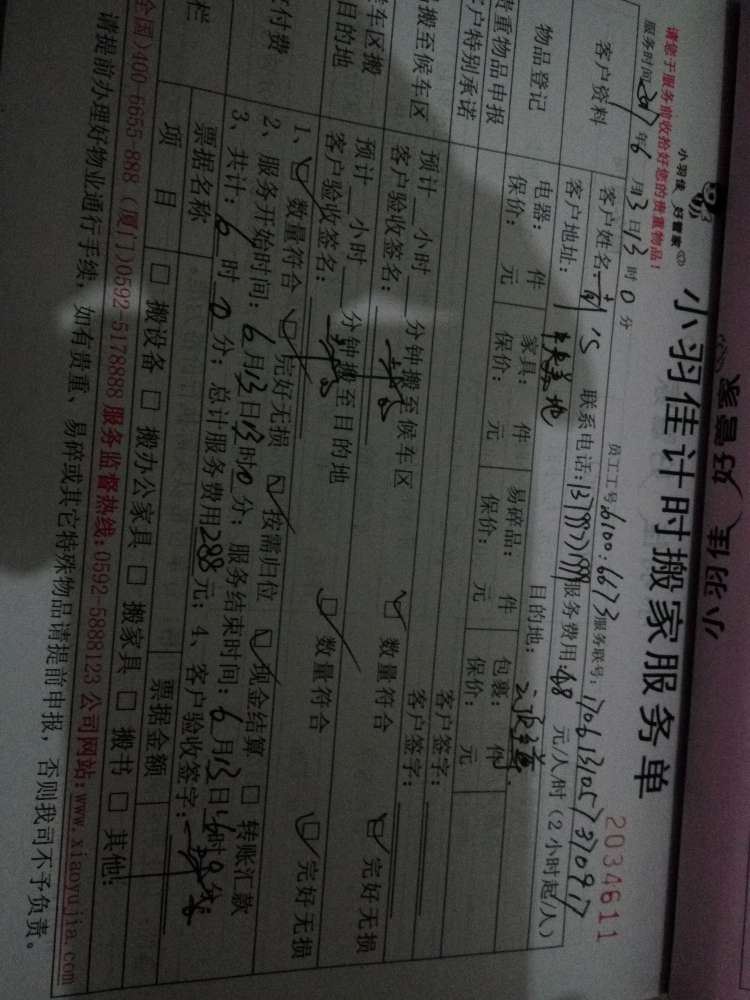 小羽佳
好管家
小羽佳计时搬家服务单
2034611
请您于服务前收拾好您的贵重物品！
服务时间: 2017年6月13日13时0分
员工工号: 6100:6673
服务联号: 170613105737091
客户资料
客户姓名:
联系电话:
服务费用: 48 元/人/时（2小时起/人）
客户地址:
目的地:
物品登记
电器: 件
家具: 件
易碎品: 件
包裹: 件
保价: 元
保价: 元
保价: 元
保价: 元
贵重物品申报
客户签字:
客户特别承诺
客户签字:
搬至候车区
预计 小时 分钟搬至候车区
数量符合
完好无损
客户验收签名:
候车区搬
目的地
预计 小时 分钟搬至目的地
数量符合
完好无损
客户验收签名:
付费
1、 数量符合 完好无损 按需归位 现金结算 转账汇款
2、服务开始时间: 6月13日13时0分; 服务结束时间: 6月13日16时0分;
3、共计: 6时0分; 总计服务费用288元; 4、客户验收签字:
栏
票据名称
票据金额
项目
搬设备 搬办公家具 搬家具 搬书 其他:
全国)400-6655-888 (厦门)0592-5178888 服务监督热线: 0592-5888123 公司网站: www.xiaoyujia.com
请提前办理好物业通行手续, 如有贵重、易碎或其它特殊物品请提前申报, 否则我司不予负责。